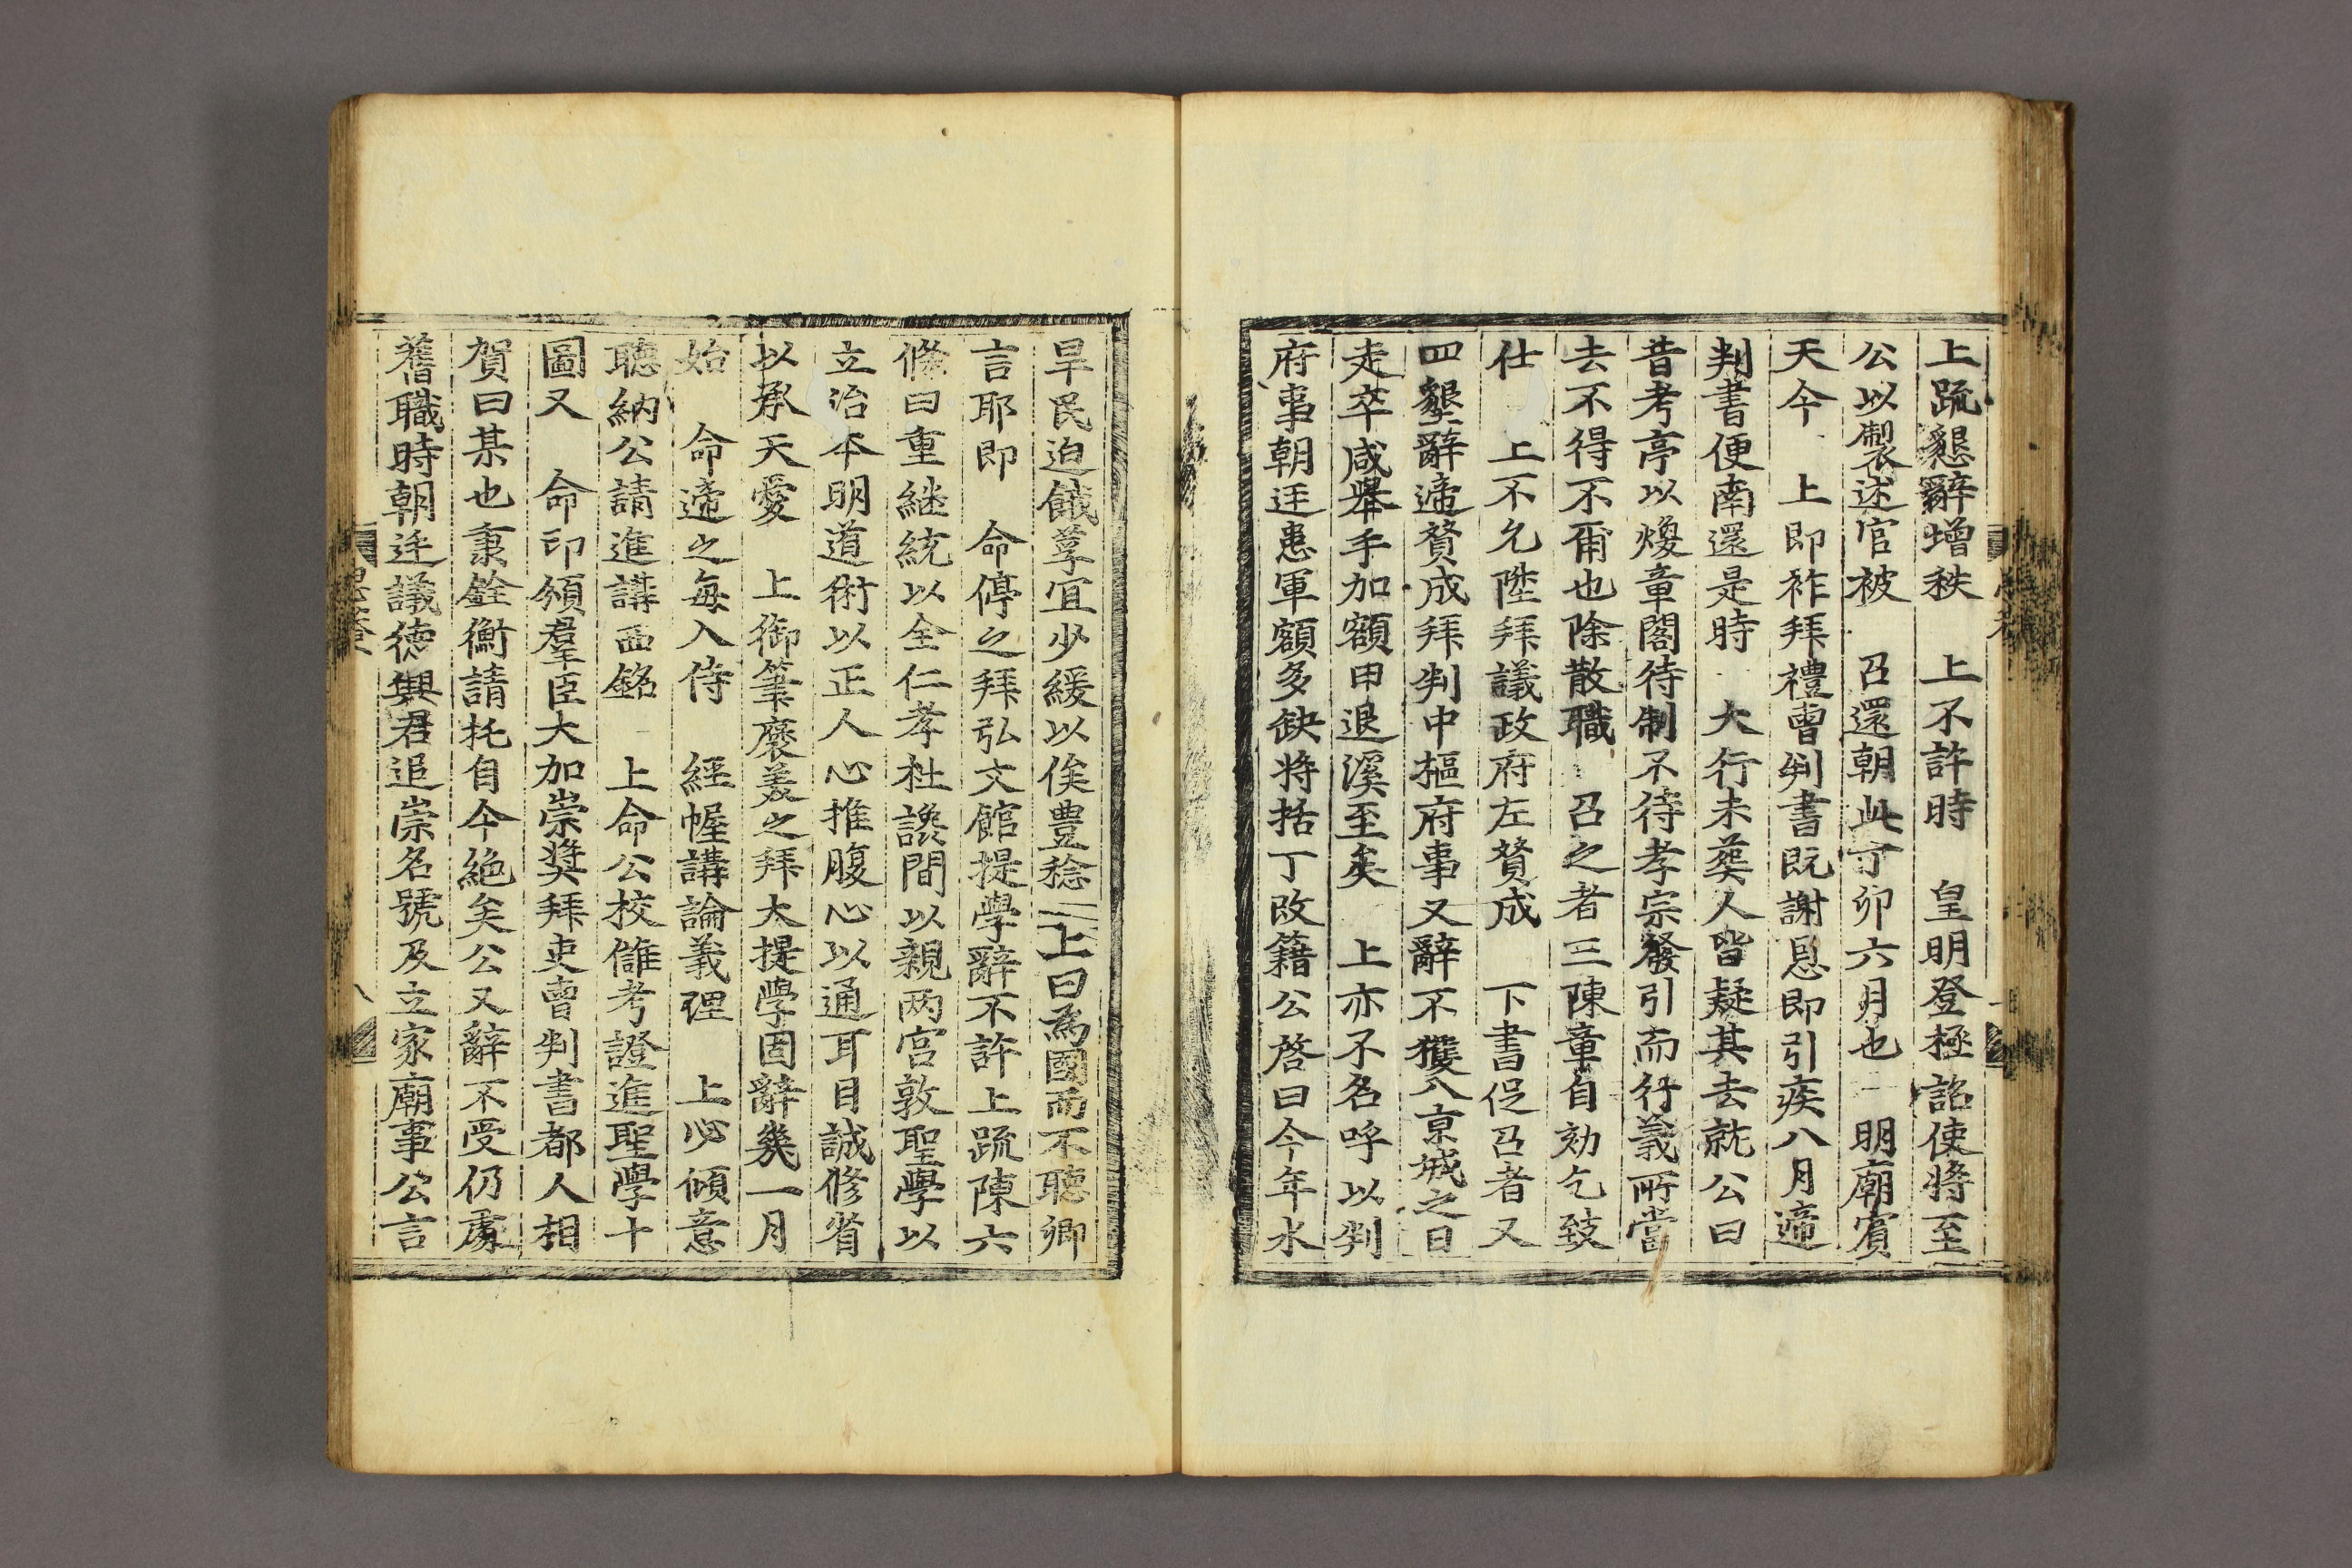 上疏懇辭增秩 上不許時 皇明登極詔使將至
公以製述官被 召還朝此丁卯六月也 明廟賓
天今 上即祚拜禮曺判書既謝恩即引疾八月遞
判書便南還是時 大行未葬人皆疑其去就公曰
昔考亭以煥章閣待制不待孝宗發引而行義所當
去不得不爾也除散職 召之者三陳章自劾乞致
仕 上不允陞拜議政府左贊成 下書促召者又
四墾辭遞贊成拜判中樞府事又辭不獲入京城之日
走卒咸擧手加額曰退溪至矣 上亦不名呼以判
府事朝廷患軍額多缺將括丁改籍公啓曰今年水
旱民迫餓莩宜少緩以俟豊稔 上曰爲國而不聽卿
言耶即 命停之拜弘文館提學辭不許上疏陳六
條曰重継統以全仁孝杜讒間以親两宮敦聖學以
立治本明道術以正人心推腹心以通耳目誠修省
以承天愛 上御筆褒美之拜大提學固辭幾一月
始 命遞之每入侍 經幄講論義理 上必傾意
聽納公請進講西銘 上命公校讎考證進聖學十
圖又 命印頒羣臣大加崇奬拜吏曺判書都人相
賀曰某也秉銓衡請托自今絶矣公又辭不受仍處
舊職時朝廷議德興君追崇名號及立家廟事公言